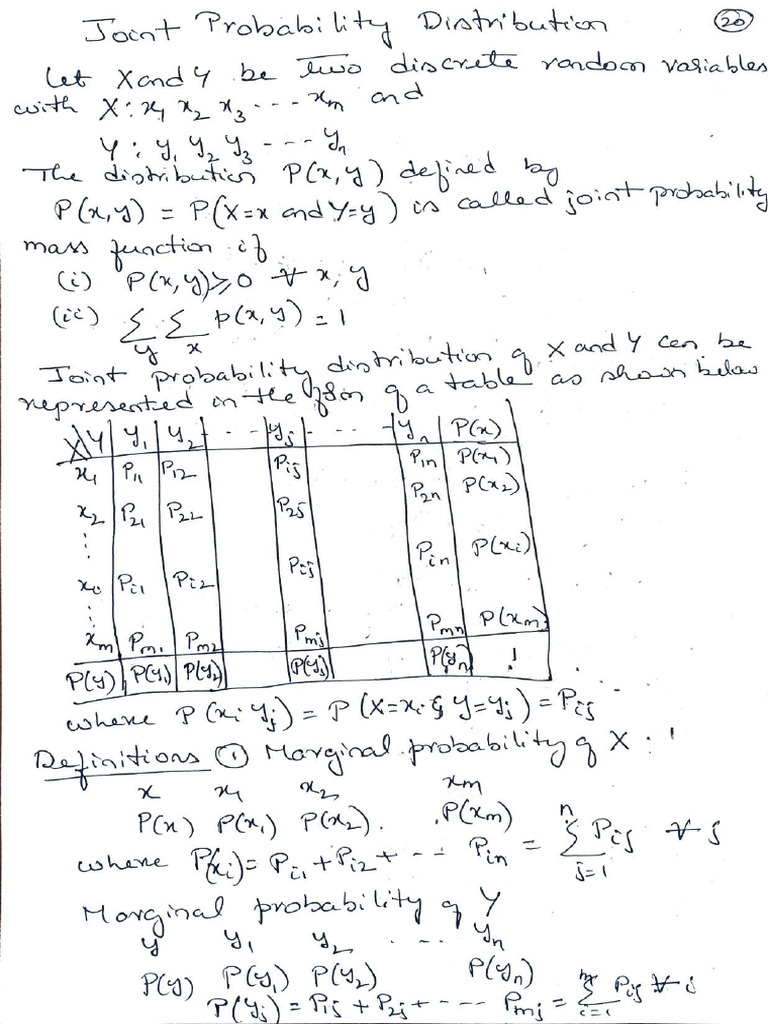 Joint Probability Distribution 20
Let X and Y be two discrete random variables
with X : x₁ x₂ x₃ - - - xₘ and
Y : y₁ y₂ y₃ - - - yₙ
The distribution P(x, y) defined by
P(x,y) = P(X=x and Y=y) is called joint probability
mass function if
(i) P(x,y) ≥ 0 ∀ x, y
(ii) Σ_y Σ_x p(x,y) = 1
Joint probability distribution of X and Y can be
represented in the form of a table as shown below
X\Y y₁ y₂ - - yⱼ - - - - yₙ P(x)
x₁ P₁₁ P₁₂ P₁ⱼ P₁ₙ P(x₁)
x₂ P₂₁ P₂₂ P₂ⱼ P₂ₙ P(x₂)
⋮
xᵢ Pᵢ₁ Pᵢ₂ Pᵢⱼ Pᵢₙ P(xᵢ)
⋮
xₘ Pₘ₁ Pₘ₂ Pₘⱼ Pₘₙ P(xₘ)
P(y) P(y₁) P(y₂) P(yⱼ) P(yₙ) 1
where P(xᵢ yⱼ) = P(X=xᵢ & Y=yⱼ) = Pᵢⱼ
Definitions ① Marginal probability of X :
x x₁ x₂ xₘ
P(x) P(x₁) P(x₂) . . P(xₘ)
where P(xᵢ) = Pᵢ₁ + Pᵢ₂ + - - - Pᵢₙ = Σ_{j=1}^{n} Pᵢⱼ ∀ j
Marginal probability of Y
y y₁ y₂ . . - - . yₙ
P(y) P(y₁) P(y₂) P(yₙ)
P(yⱼ) = P₁ⱼ + P₂ⱼ + - - - - Pₘⱼ = Σ_{i=1}^{m} Pᵢⱼ ∀ i